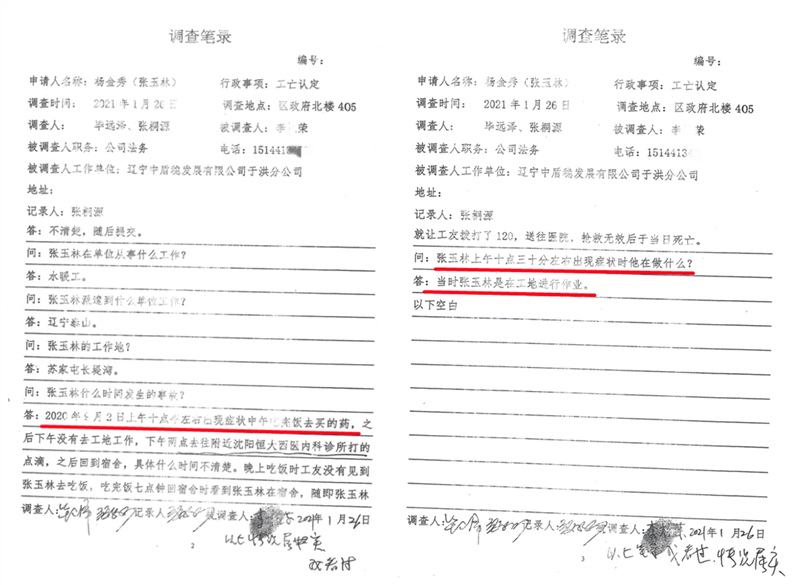 调查笔录
编号：
申请人名称：杨金秀（张玉林） 行政事项：工亡认定
调查时间： 2021年1月26日 调查地点：区政府北楼405
调查人： 毕远泽、张桐源 被调查人：李 荣
被调查人职务：公司法务 电话：1514413
被调查人工作单位：辽宁中盾穗发展有限公司于洪分公司
地址：
记录人：张桐源
答：不清楚，随后提交。
问：张玉林在单位从事什么工作？
答：水暖工。
问：张玉林派遣到什么单位工作？
答：辽宁泰山。
问：张玉林的工作地？
答：苏家屯长堤湾。
问：张玉林什么时间发生的事故？
答：2020年9月2日上午十点半左右出现症状中午吃完饭去买的药，之
后下午没有去工地工作，下午两点去往附近沈阳恒大西医内科诊所打的
点滴，之后回到宿舍，具体什么时间不清楚。晚上吃饭时工友没有见到
张玉林去吃饭，吃完饭七点钟回宿舍时看到张玉林在宿舍，随即张玉林
调查人： 记录人 被调查人： 2021年1月26日
2
以上情况属实
调查笔录
编号：
申请人名称：杨金秀（张玉林） 行政事项：工亡认定
调查时间： 2021年1月26日 调查地点：区政府北楼405
调查人： 毕远泽、张桐源 被调查人：李 荣
被调查人职务：公司法务 电话：15144134
被调查人工作单位：辽宁中盾穗发展有限公司于洪分公司
地址：
记录人：张桐源
就让工友拨打了120，送往医院，抢救无效后于当日死亡。
问：张玉林上午十点三十分左右出现症状时他在做什么？
答：当时张玉林是在工地进行作业。
以下空白
调查人： 记录人 被调查人： 2021年1月26日
以上笔录我看过，情况属实